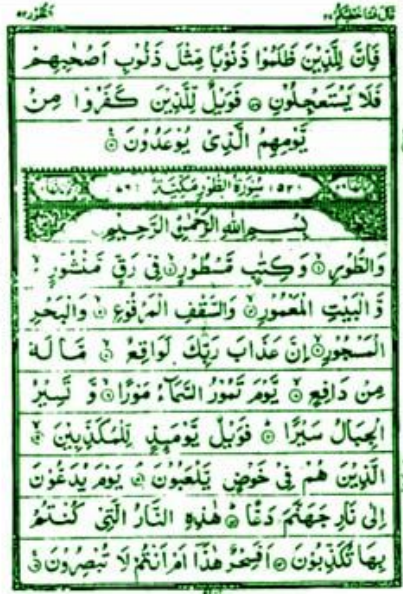 قال فما خطبكم ٢٧
الطور ٥٢
فَاِنَّ لِلَّذِيْنَ ظَلَمُوْا ذَنُوْبًا مِّثْلَ ذَنُوْبِ اَصْحٰبِهِمْ
فَلَا يَسْتَعْجِلُوْنِ ۝ فَوَيْلٌ لِّلَّذِيْنَ كَفَرُوْا مِنْ
يَّوْمِهِمُ الَّذِيْ يُوْعَدُوْنَ ۝
سُوْرَةُ الطُّوْرِ مَكِّيَّةٌ
بِسْمِ اللّٰهِ الرَّحْمٰنِ الرَّحِيْمِ
وَالطُّوْرِ ۝ وَكِتٰبٍ مَّسْطُوْرٍ ۝ فِيْ رَقٍّ مَّنْشُوْرٍ ۝
وَّالْبَيْتِ الْمَعْمُوْرِ ۝ وَالسَّقْفِ الْمَرْفُوْعِ ۝ وَالْبَحْرِ
الْمَسْجُوْرِ ۝ اِنَّ عَذَابَ رَبِّكَ لَوَاقِعٌ ۝ مَّا لَهٗ
مِنْ دَافِعٍ ۝ يَّوْمَ تَمُوْرُ السَّمَآءُ مَوْرًا ۝ وَّتَسِيْرُ
الْجِبَالُ سَيْرًا ۝ فَوَيْلٌ يَّوْمَئِذٍ لِّلْمُكَذِّبِيْنَ ۝
الَّذِيْنَ هُمْ فِيْ خَوْضٍ يَّلْعَبُوْنَ ۝ يَوْمَ يُدَعُّوْنَ
اِلٰى نَارِ جَهَنَّمَ دَعًّا ۝ هٰذِهِ النَّارُ الَّتِيْ كُنْتُمْ
بِهَا تُكَذِّبُوْنَ ۝ اَفَسِحْرٌ هٰذَا اَمْ اَنْتُمْ لَا تُبْصِرُوْنَ ۝